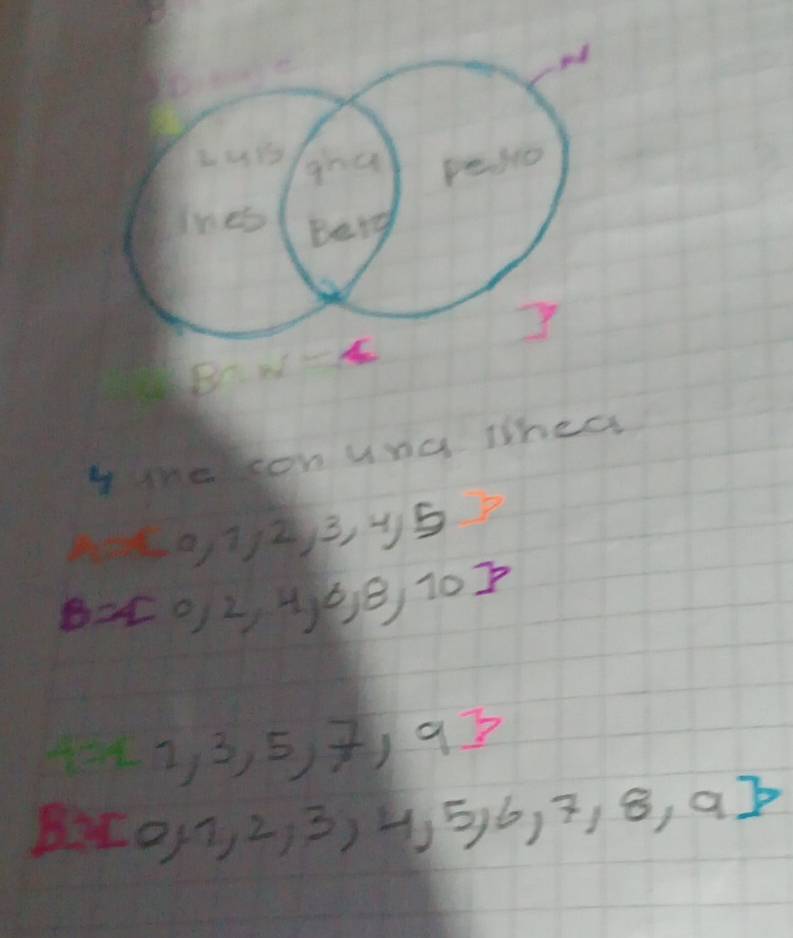 N
Luis ana pedro
ines Beto
B∩N={ }
4 une con una linea
A={0,1,2,3,4,5}
B={0,2,4,6,8,10}
A={1,3,5,7,9}
B={0,1,2,3,4,5,6,7,8,9}